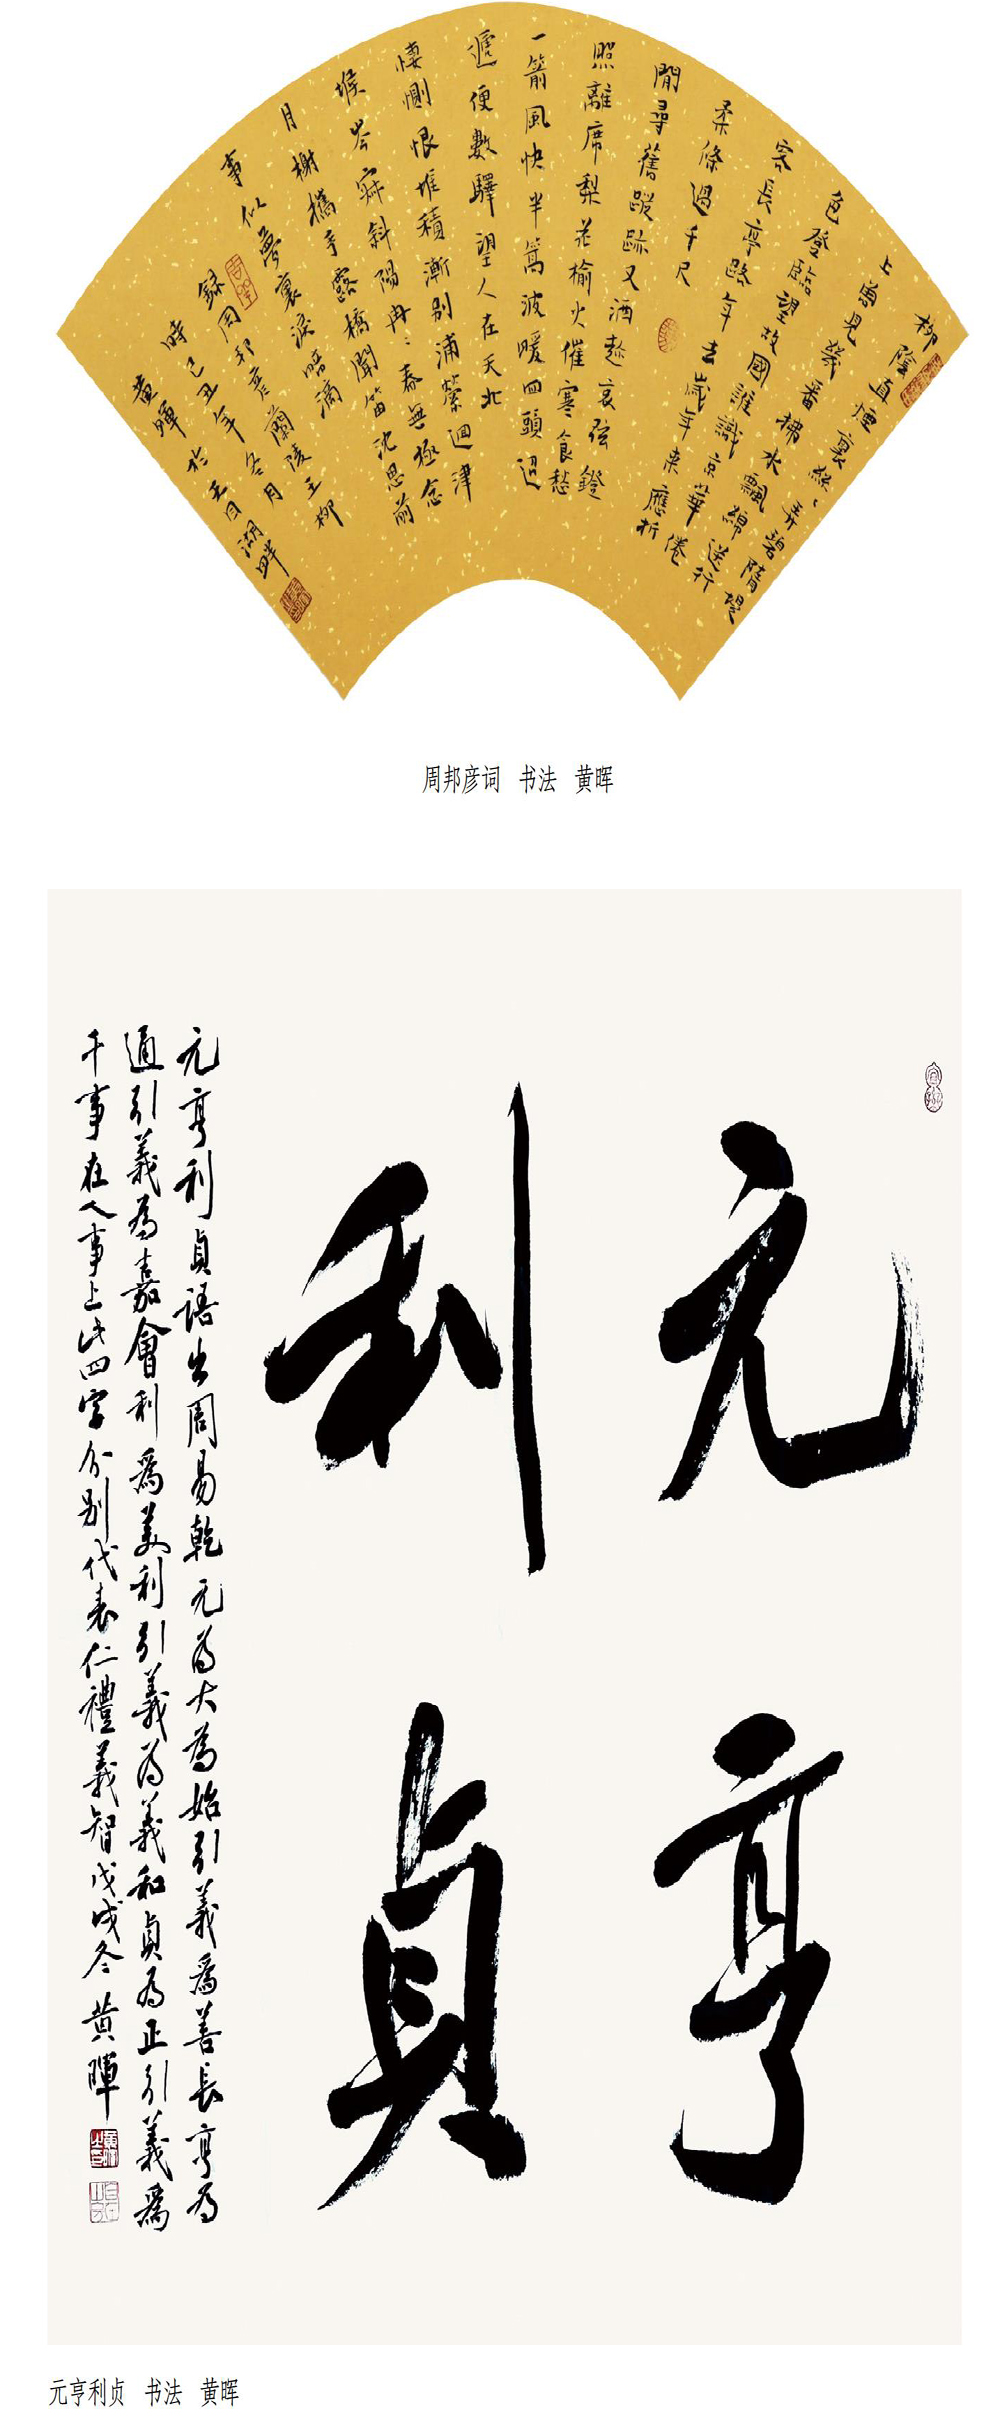 柳陰直煙裏絲〻弄碧隋堤
上曾見幾番拂水飄綿送行
色登臨望故國誰識京華倦
客長亭路年去歲年来應折
柔條過千尺
閒尋舊蹤跡又酒趁哀弦鐙
照離席梨花榆火催寒食愁
一箭風快半篙波暖回頭迢
遞便數驛望人在天北
悽惻恨堆積漸別浦縈迴津
堠岑寂斜陽冉〻春無極念
月榭攜手露橋聞笛沈思前
事似夢裏淚暗滴
錄周邦彦蘭陵王柳
時己丑年冬月
黄暉於天目湖畔
周邦彦词 书法 黄晖
元亨
利貞
元亨利貞語出周易乾元為大為始引義為善長亨為
通引義為嘉會利為美利引義為義和貞為正引義為
干事在人事上此四字分別代表仁禮義智戊戌冬黄暉
元亨利贞 书法 黄晖